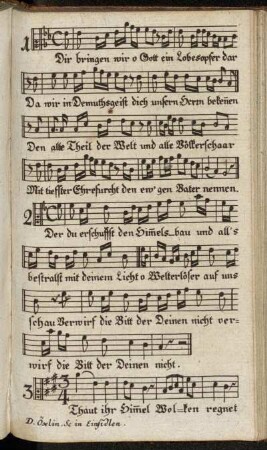 1
Dir bringen wir o Gott ein Lobesopfer dar
Da wir in Demuthsgeist dich unsern Herrn bekeñen
Den alle Theil der Welt und alle Völkerschaar
Mit tieffster Ehrefurcht den ew'gen Vater nennen.
2
Der du erschuffst den Him̄els-bau und all's
bestralst mit deinem Licht o Welterlöser auf uns
schau Verwirf die Bitt der Deinen nicht ver-
wirf die Bitt der Deinen nicht.
3
3/4
Thaut ihr Him̄el Wol-ken regnet
D. Öxlin. Sc in Einsidlen.